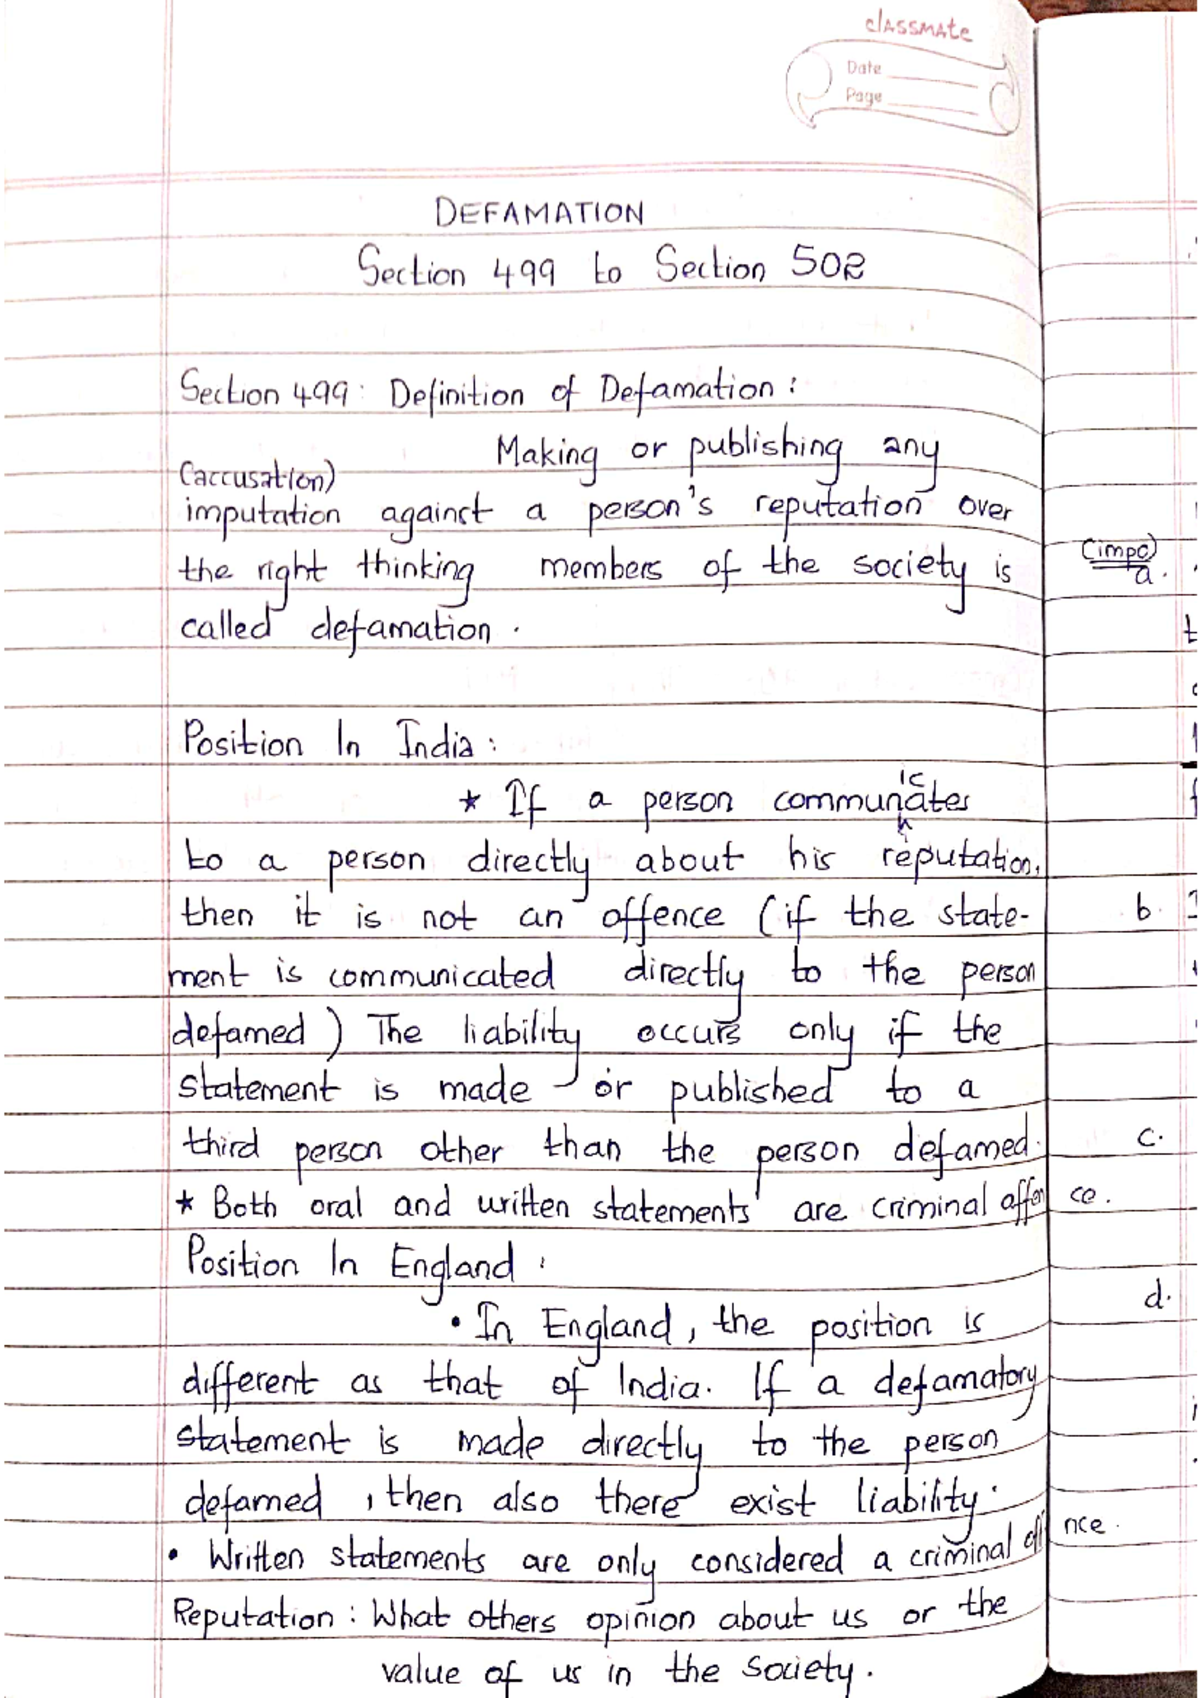 classmate
Date
Page
DEFAMATION
Section 499 to Section 502
Section 499: Definition of Defamation:
Making or publishing any
(accusation)
imputation against a person's reputation over
the right thinking members of the society is
called defamation.
Position In India:
* If a person communicates
to a person directly about his reputation,
then it is not an offence (if the state-
ment is communicated directly to the person
defamed) The liability occurs only if the
statement is made or published to a
third person other than the person defamed.
* Both oral and written statements are criminal offence.
Position In England:
• In England, the position is
different as that of India. If a defamatory
statement is made directly to the person
defamed, then also there exist liability.
• Written statements are only considered a criminal offence.
Reputation: What others opinion about us or the
value of us in the Society.
(imp)
a.
b.
c.
d.